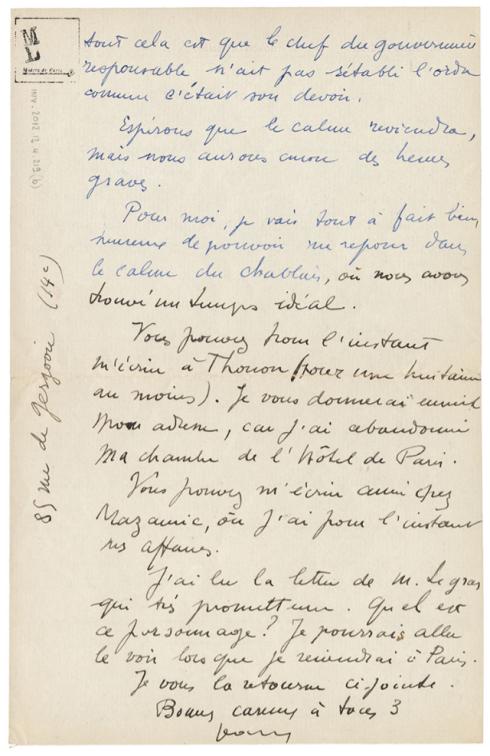 tout cela est que le chef du gouvernement
responsable n'ait pas rétabli l'ordre
comme c'était son devoir.
Espérons que le calme reviendra,
mais nous aurons encore des heures
graves.
Pour moi, je vais tout à fait bien,
heureuse de pouvoir me reposer dans
le calme du chablais, où nous avons
trouvé un temps idéal.
Vous pouvez pour l'instant
m'écrire à Thonon (pour une huitaine
au moins). Je vous donnerai ensuite
mon adresse, car j'ai abandonné
ma chambre de l'Hôtel de Paris.
Vous pouvez m'écrire aussi chez
Mazamic, où j'ai pour l'instant
mes affaires.
J'ai lu la lettre de M. Legras
qui est prometteuse. Quel est
ce personnage? Je pourrais aller
le voir lorsque je reviendrai à Paris.
Je vous la retourne ci-jointe.
Bonnes caresses à tous 3
85 rue de Gergovie (14e)
ML
Musées de Paris
INV. 2012.12.4.213(b)